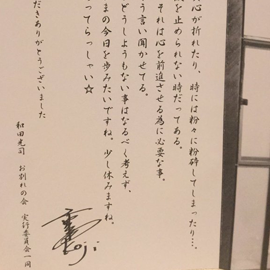 心が折れたり、時には粉々に粉砕してしまったり…。
を止められない時だってある。
それは心を前進させる為に必要な事。
う言い聞かせてる。
どうしようもない事はなるべく考えず、
まの今日を歩みたいですね。少し休みますね。
ってらっしゃい☆
だきありがとうございました
和田光司 お別れの会 実行委員会一同
Koji